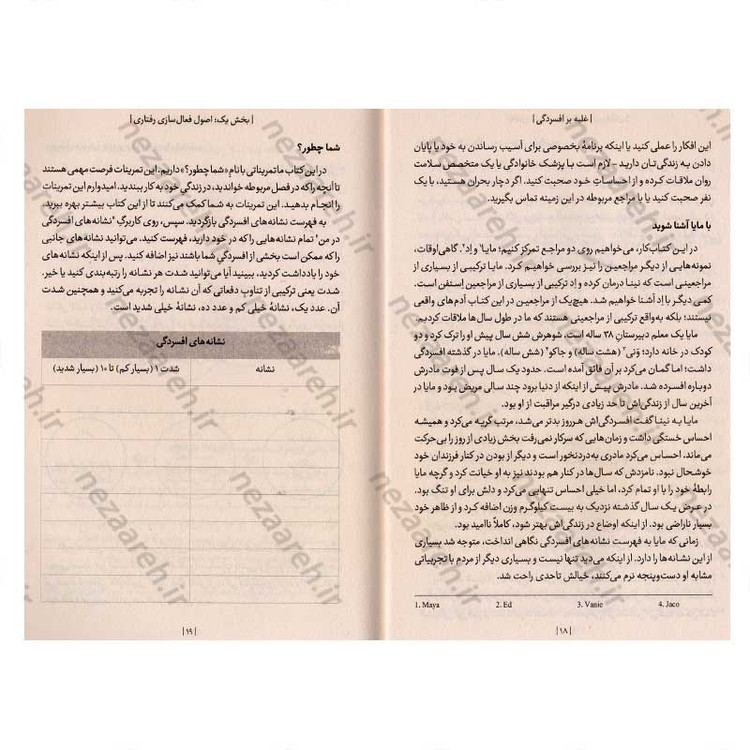 | غلبه بر افسردگی |
این افکار را عملی کنید یا اینکه برنامهٔ بخصوصی برای آسیب رساندن به خود یا پایان
دادن به زندگی‌تان دارید – لازم است با پزشک خانوادگی یا یک متخصص سلامت
روان ملاقات کرده و از احساسات خود صحبت کنید. اگر دچار بحران هستید، با یک
نفر صحبت کنید یا با مراجع مربوطه در این زمینه تماس بگیرید.
با مایا آشنا شوید
در این کتاب‌کار، می‌خواهیم روی دو مراجع تمرکز کنیم؛ مایا۱ و اِد۲. گاهی‌اوقات،
نمونه‌هایی از دیگر مراجعین را نیز بررسی خواهیم کرد. مایا ترکیبی از بسیاری از
مراجعینی است که نینا درمان کرده و اِد ترکیبی از بسیاری از مراجعین استفن است.
کمی دیگر با اِد آشنا خواهیم شد. هیچ‌یک از مراجعین در این کتاب آدم‌های واقعی
نیستند؛ بلکه به‌واقع ترکیبی از مراجعینی هستند که ما در طول سال‌ها ملاقات کردیم.
مایا یک معلم دبیرستانِ ۳۸ ساله است، شوهرش شش سال پیش او را ترک کرد و دو
کودک در خانه دارد؛ وَنی۳ (هشت ساله) و جاکو۴ (شش ساله). مایا در گذشته افسردگی
داشت؛ اما گمان می‌کرد بر آن فائق آمده است. حدود یک سال پس از فوت مادرش
دوباره افسرده شد. مادرش پیش از اینکه از دنیا برود چند سالی مریض بود و مایا در
آخرین سال از زندگی‌اش تا حد زیادی درگیر مراقبت از او بود.
مایا به نینا گفت افسردگی‌اش هرروز بدتر می‌شد، مرتب گریه می‌کرد و همیشه
احساس خستگی داشت و زمان‌هایی که سرکار نمی‌رفت بخش زیادی از روز را بی‌حرکت
می‌ماند. احساس می‌کرد مادری به‌دردنخور است و دیگر از بودن در کنار فرزندان خود
خوشحال نبود. نامزدش که سال‌ها در کنار هم بودند نیز به او خیانت کرد و گرچه مایا
رابطهٔ خود را با او تمام کرد، اما خیلی احساس تنهایی می‌کرد و دلش برای او تنگ بود.
در عرض یک سال گذشته نزدیک به بیست کیلوگرم وزن اضافه کرد و از ظاهر خود
بسیار ناراضی بود. از اینکه اوضاع در زندگی‌اش بهتر شود، کاملاً ناامید بود.
زمانی که مایا به فهرست نشانه‌های افسردگی نگاهی انداخت، متوجه شد بسیاری
از این نشانه‌ها را دارد. از اینکه می‌دید تنها نیست و بسیاری دیگر از مردم با تجربیاتی
مشابه او دست‌وپنجه نرم می‌کنند، خیالش تاحدی راحت شد.
1. Maya 2. Ed 3. Vanie 4. Jaco
| ۱۸ |
| بخش یک: اصول فعال‌سازی رفتاری |
شما چطور؟
در این کتاب ما تمریناتی با نام «شما چطور؟» داریم. این تمرینات فرصت مهمی هستند
تا آنچه را که در فصل مربوطه خواندید، در زندگی خود به کار ببندید. امیدوارم این تمرینات
را انجام بدهید. این تمرینات به شما کمک می‌کنند تا از این کتاب بیشتر بهره ببرید.
به فهرست نشانه‌های افسردگی بازگردید. سپس، روی کاربرگ "نشانه‌های افسردگی
در من" تمام نشانه‌هایی را که در خود دارید، فهرست کنید. می‌توانید نشانه‌های جانبی
را که ممکن است بخشی از افسردگیِ شما باشند نیز اضافه کنید. پس از اینکه نشانه‌های
خود را یادداشت کردید، ببینید آیا می‌توانید شدت هر نشانه را رتبه‌بندی کنید یا خیر.
شدت یعنی ترکیبی از تناوب دفعاتی که آن نشانه را تجربه می‌کنید و همچنین شدت
آن. عدد یک، نشانهٔ خیلی کم و عدد ده، نشانهٔ خیلی شدید است.
نشانه‌های افسردگی
نشانه شدت ۱ (بسیار کم) تا ۱۰ (بسیار شدید)
| ۱۹ |
nezaareh.ir